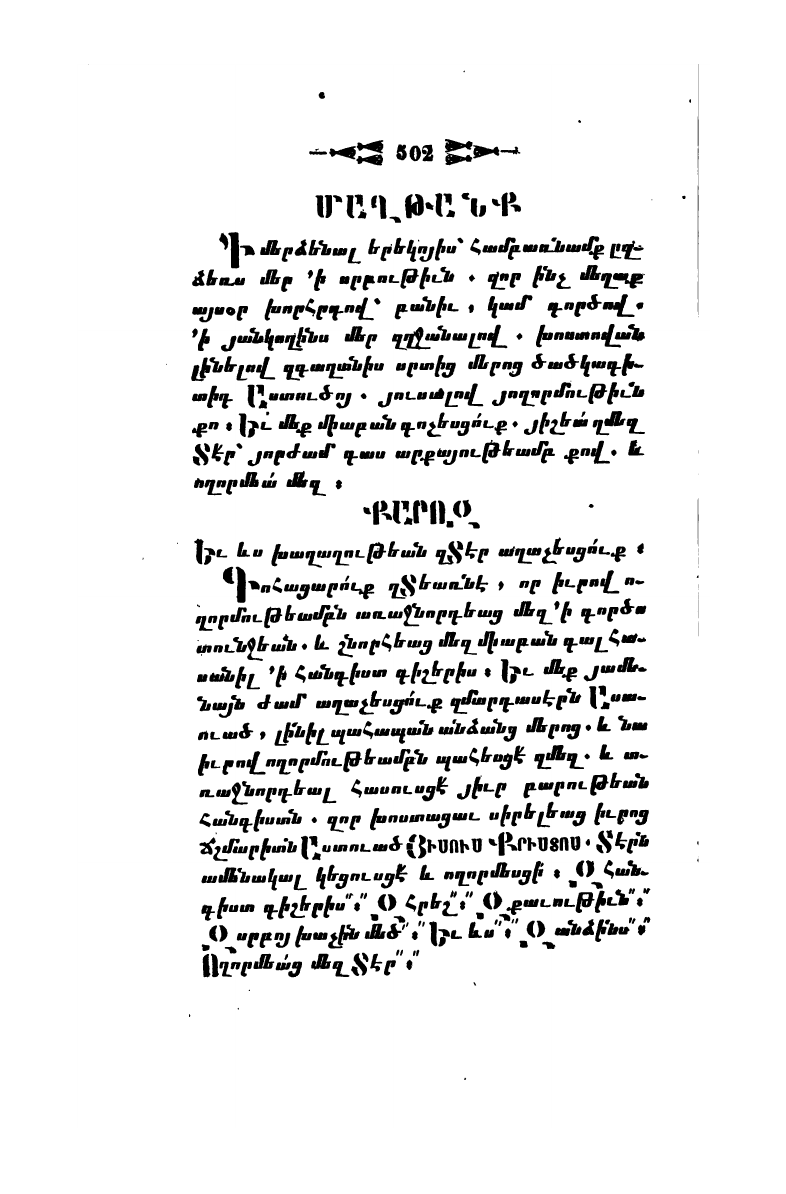 502
ՄԱՂԹԱՆՔ
Ի մերձենալ երեկոյիս՝ համբառնամք ըզ-
ձեռս մեր ՚ի սրբութիւն . զոր ինչ մեղաք
այսօր խորհրդով՝ բանիւ , կամ գործով .
՚ի յանկողինս մեր զղջանալով . խոստովան
լինելով զգաղտնիս սրտից մերոց ծածկագի-
տիդ Աստուծոյ . յուսալով յողորմութիւն
քո ։ Եւ մեք միաբան գոչեսցուք . յիշեա՛ զմեզ
Տէր՝ յորժամ գաս արքայութեամբ քով . և
ողորմեա՛ մեզ ։
ՔԱՐՈԶ
Եւ ևս խաղաղութեան զՏէր աղաչեսցո՛ւք ։
Գոհացարո՛ւք զՏեառնէ , որ իւրով ո-
ղորմութեամբն առաջնորդեաց մեզ ՚ի գործս
տունջեան . և շնորհեաց մեզ միաբան գալ հա-
սանիլ ՚ի հանգիստ գիշերիս ։ Եւ մեք յամե-
նայն ժամ աղաչեսցո՛ւք զմարդասէրն Աստ-
ուած , լինիլ պահապան անձանց մերոց . և նա
իւրով ողորմութեամբն պահեսցէ զմեզ . և ա-
ռաջնորդեալ հասուսցէ յիւր բարութեան
հանգիստն . զոր խոստացաւ սիրելեաց իւրոց
ճշմարիտն Աստուած ՅԻՍՈՒՍ ՔՐԻՍՏՈՍ . Տէրն
ամենակալ կեցուսցէ և ողորմեսցի ։ Զհան-
գիստ գիշերիս՞։՞ Զհրեշ՞։՞ Զքաւութիւն՞։՞
Զսրբոյ խաչին մեծ՞։՞ Եւ ևս՞։՞ Զանձինս՞։՞
Ողորմեա՛ց մեզ Տէր՞։՞